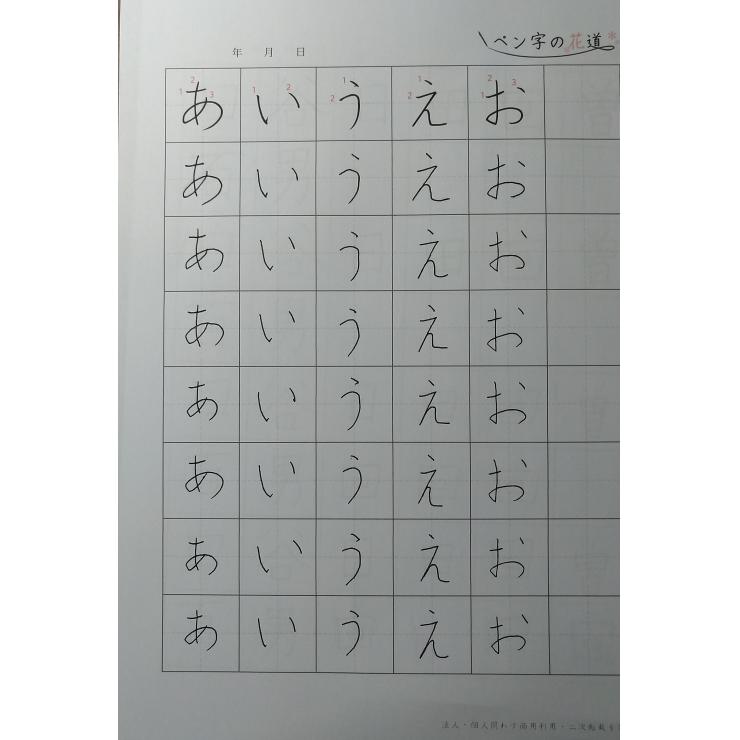 ペン字の花道
年 月 日
2 1 3 1 2 1 2 1 2 2 1 3
あ い う え お
あ い う え お
あ い う え お
あ い う え お
あ い う え お
あ い う え お
あ い う え お
あ い う え お
法人・個人関わず商用利用・二次転載を